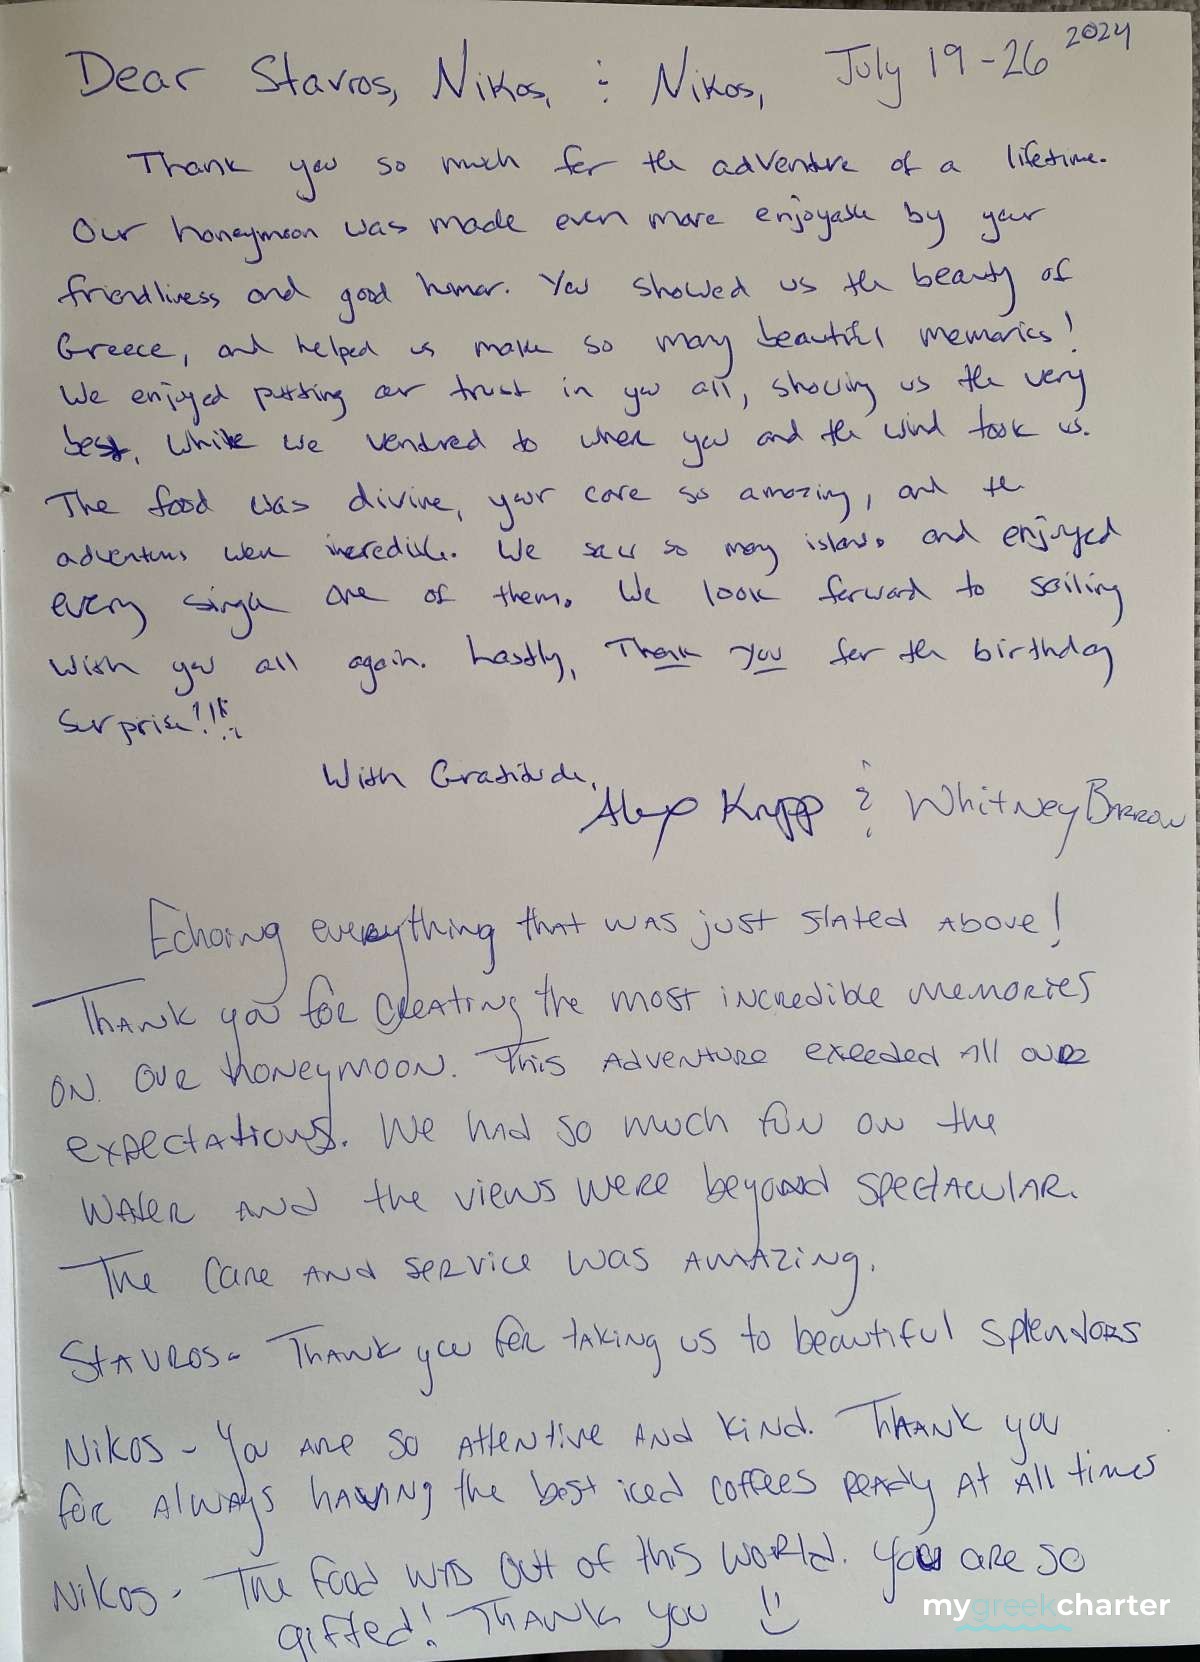 Dear Stavros, Nikos, & Nikos, July 19-26 2024
Thank you so much for the adventure of a lifetime.
Our honeymoon was made even more enjoyable by your
friendliness and good humor. You showed us the beauty of
Greece, and helped us make so many beautiful memories!
We enjoyed putting our trust in you all, showing us the very
best, while we ventured to where you and the wind took us.
The food was divine, your care so amazing, and the
adventures were incredible. We saw so many islands and enjoyed
every single one of them. We look forward to sailing
with you all again. Lastly, Thank you for the birthday
surprise!!!
With Gratitude,
Alex Knopp & Whitney Barrow
Echoing everything that was just stated above!
Thank you for creating the most incredible memories
on our honeymoon. This adventure exeeded all our
expectations. We had so much fun on the
water and the views were beyond spectacular.
The care and service was amazing.
Stavros- Thank you for taking us to beautiful splendors
Nikos - You are so attentive and kind. Thank you
for always having the best iced coffees ready at all times
Nikos - The food was out of this world. You are so
gifted! Thank you
mygreekcharter